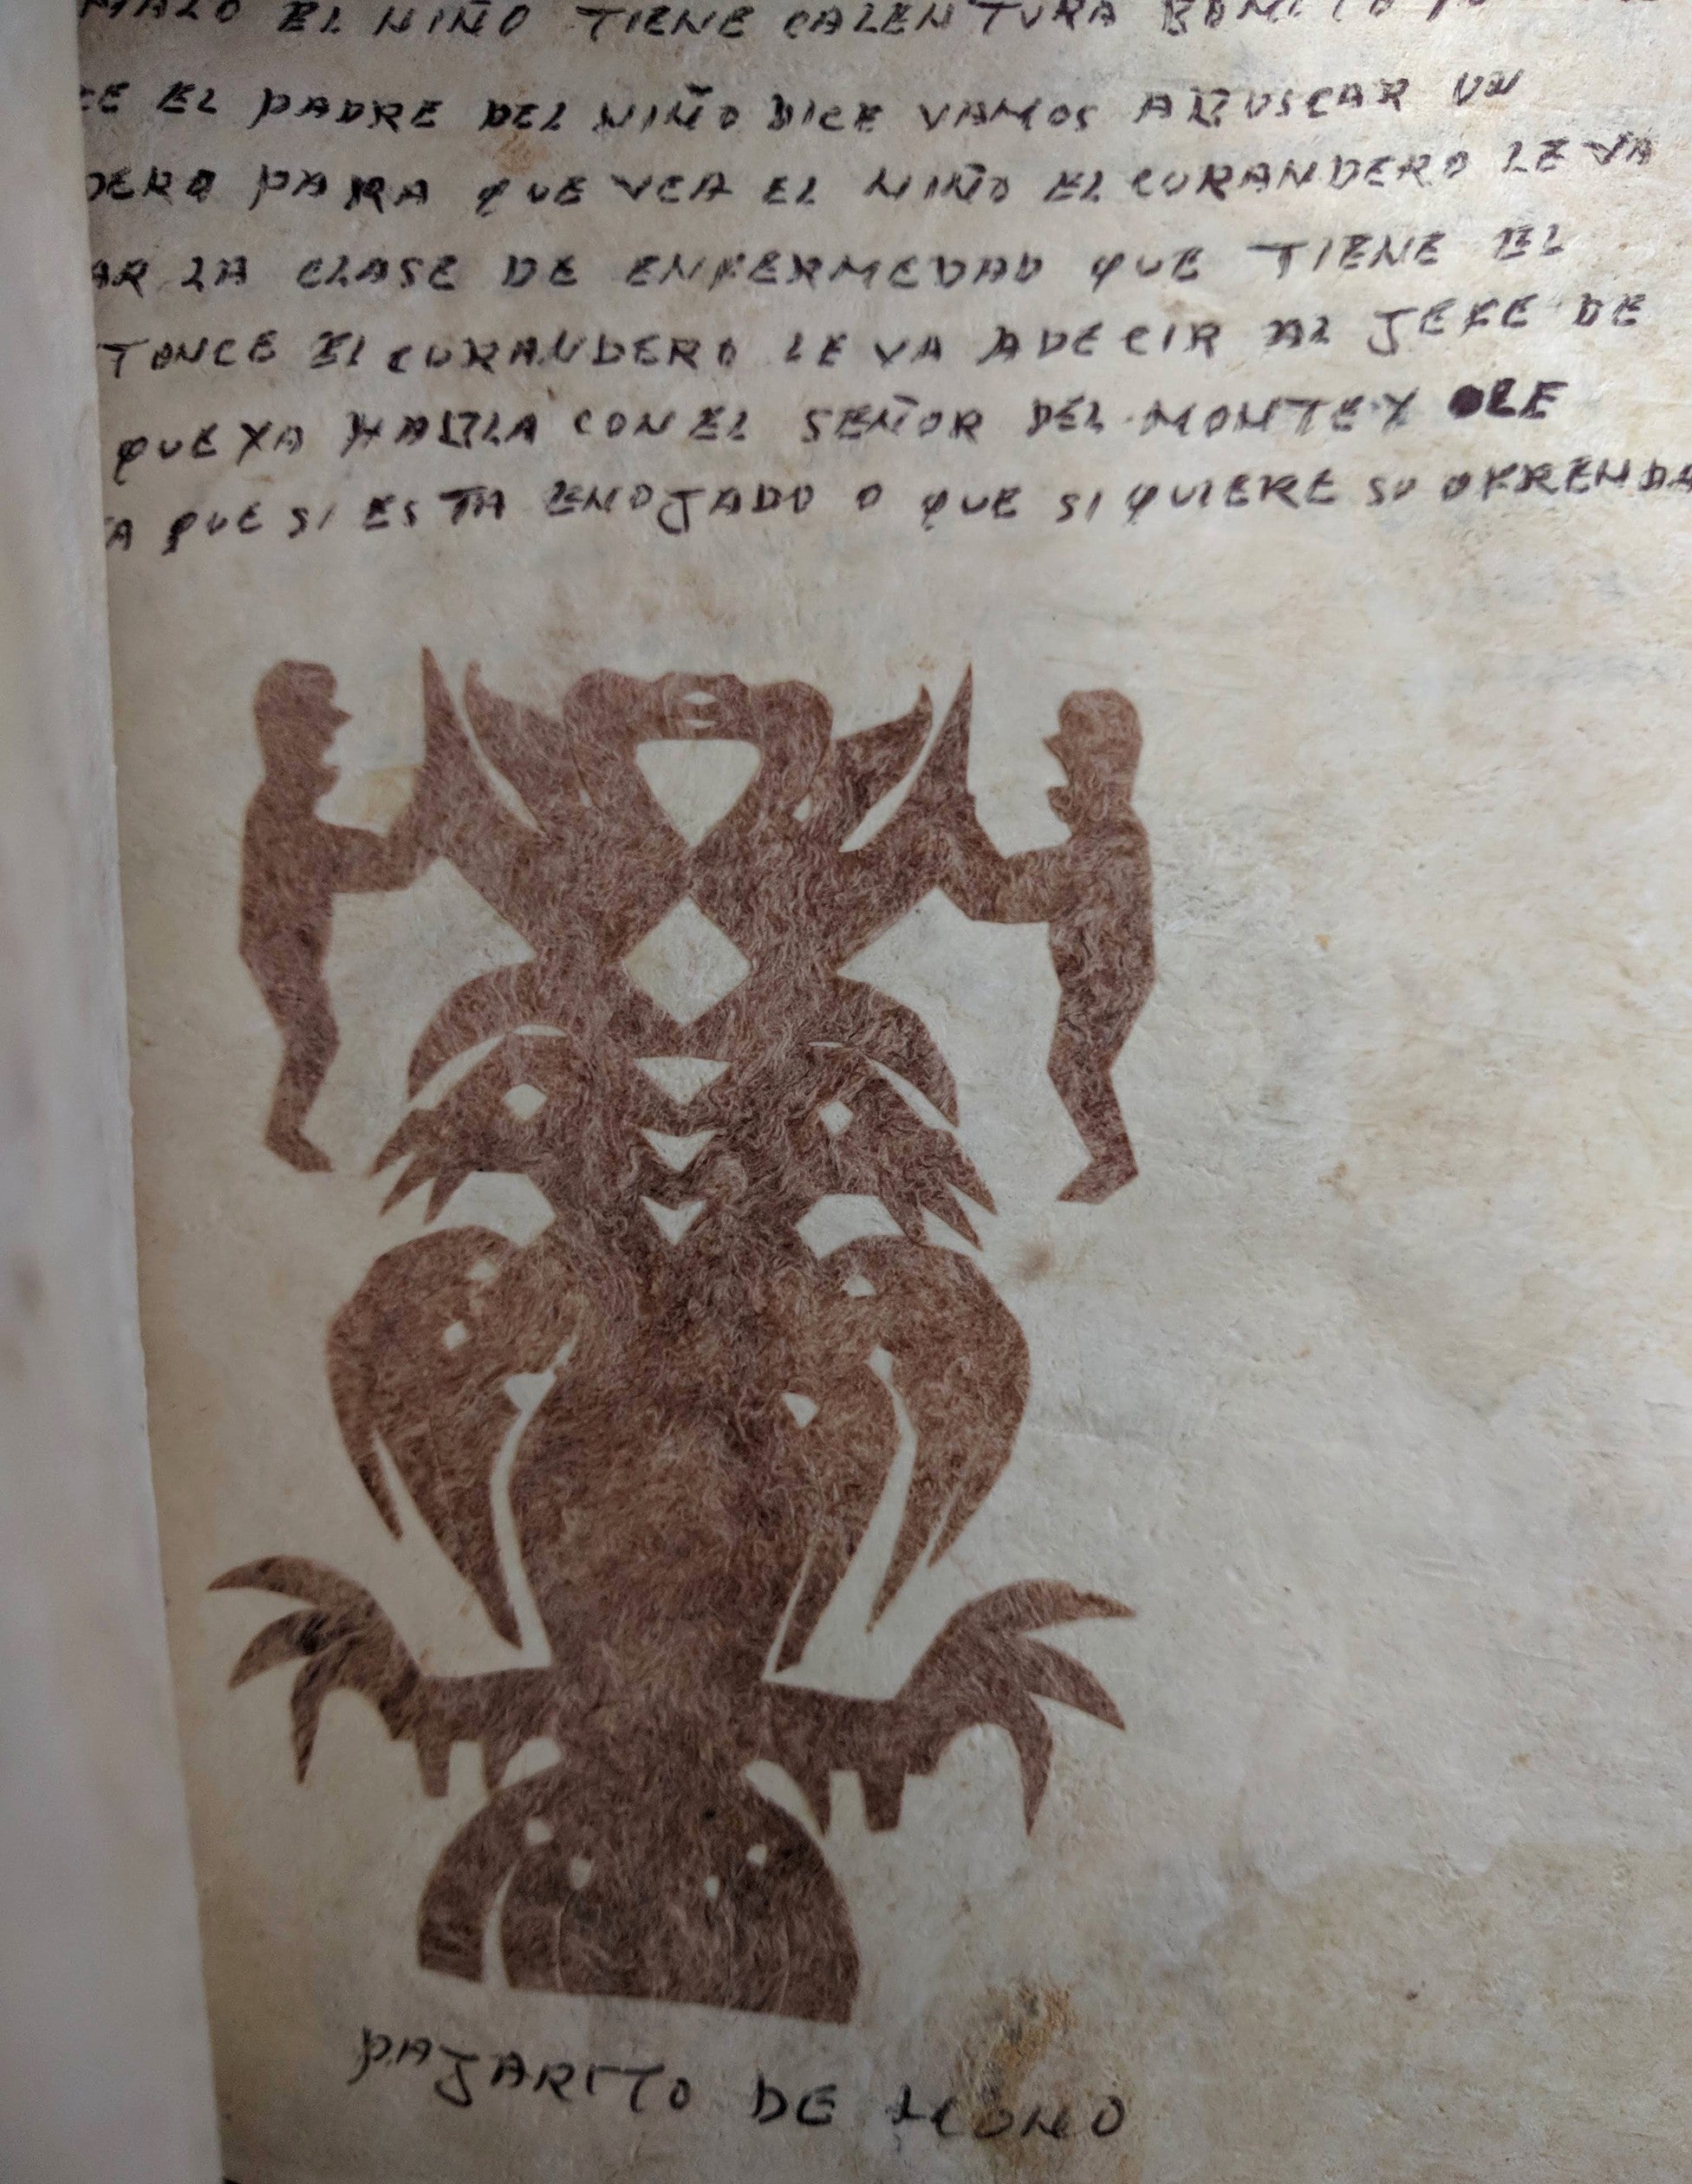 MALO EL NIÑO TIENE CALENTURA
CE EL PADRE DEL NIÑO DICE VAMOS ABUSCAR UN
DERO PARA QUE VEA EL NIÑO EL CURANDERO LE VA
AR LA CLASE DE ENFERMEDAD QUE TIENE EL
TONCE EL CURANDERO LE VA ADECIR AL JEFE DE
QUE YA HABLA CON EL SEÑOR DEL MONTE Y
A QUE SI ESTA ENOJADO O QUE SI QUIERE SU OFRENDA
PAJARITO DE